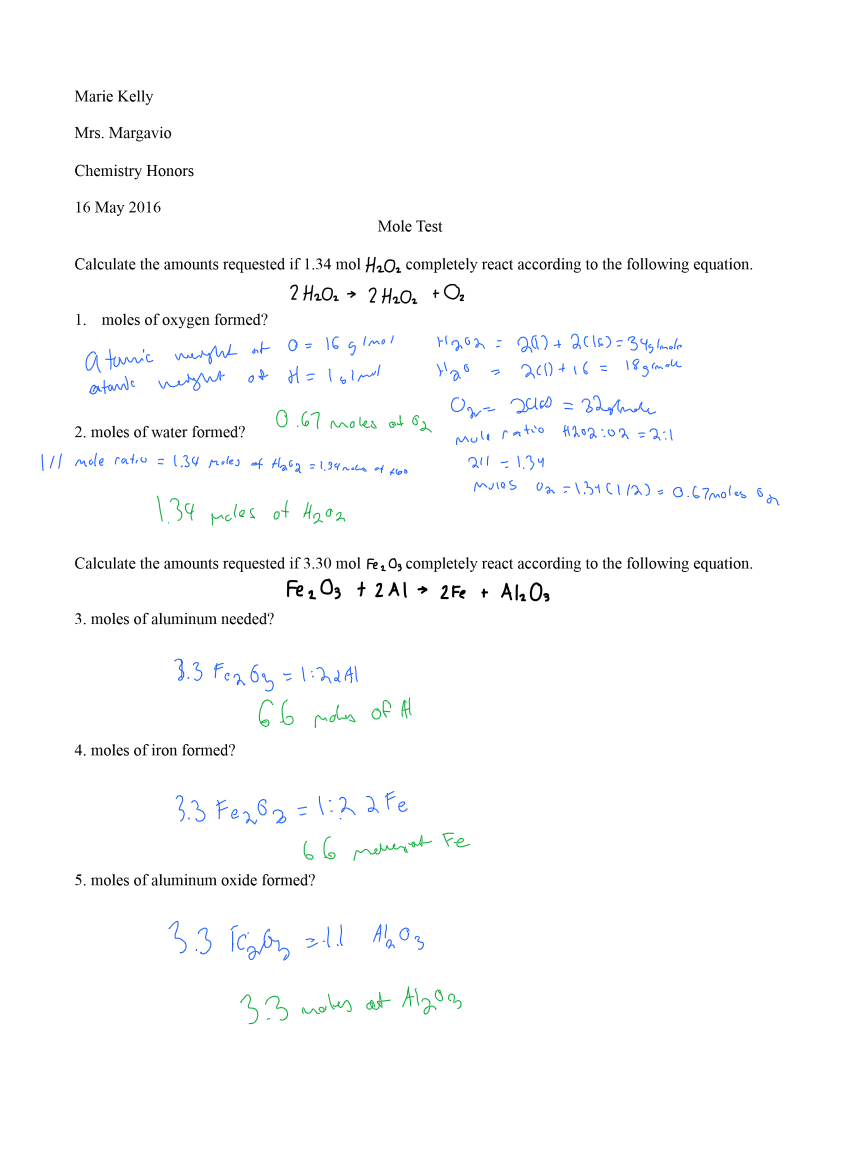 Marie Kelly
Mrs. Margavio
Chemistry Honors
16 May 2016
Mole Test
Calculate the amounts requested if 1.34 mol H₂O₂ completely react according to the following equation.
2H₂O₂ → 2H₂O₂ + O₂
1. moles of oxygen formed?
Atomic weight of O = 16 g/mol
atomic weight of H = 1 g/mol
H₂O₂ = 2(1) + 2(16) = 34g/mole
H₂O = 2(1) + 16 = 18g/mole
O₂ = 2(16) = 32g/mole
0.67 moles of O₂
mole ratio H2O2:O2 = 2:1
2/1 = 1.34
moles O₂ = 1.34(1/2) = 0.67 moles O₂
2. moles of water formed?
1/1 mole ratio = 1.34 moles of H₂O₂ = 1.34 moles of H₂O
1.34 moles of H₂O₂
Calculate the amounts requested if 3.30 mol Fe₂O₃ completely react according to the following equation.
Fe₂O₃ + 2Al → 2Fe + Al₂O₃
3. moles of aluminum needed?
3.3 Fe₂O₃ = 1:2 2Al
66 moles of Al
4. moles of iron formed?
3.3 Fe₂O₃ = 1:2 2Fe
66 moles of Fe
5. moles of aluminum oxide formed?
3.3 Fe₂O₃ = 1.1 Al₂O₃
3.3 moles of Al₂O₃